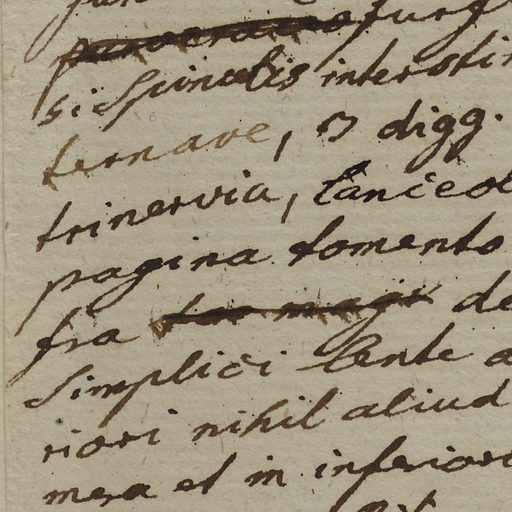 furf
si spinalis interstin
ternave, 3 digg.
trinervia, lanceol
pagina tomento
fra de
simplici lente a
riori nihil aliud
mera et in inferiori